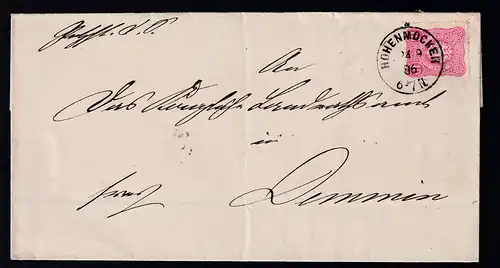 HOHENMOCKER
24 9
86
6-7 N.
An
Das Königliche Landrathsamt
in
frei
Demmin